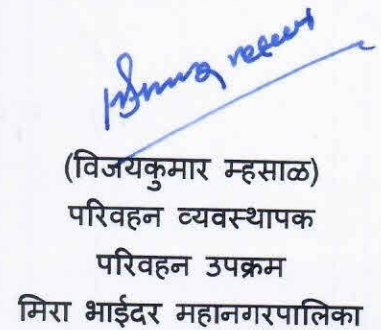 (विजयकुमार म्हसाळ)
परिवहन व्यवस्थापक
परिवहन उपक्रम
मिरा भाईंदर महानगरपालिका